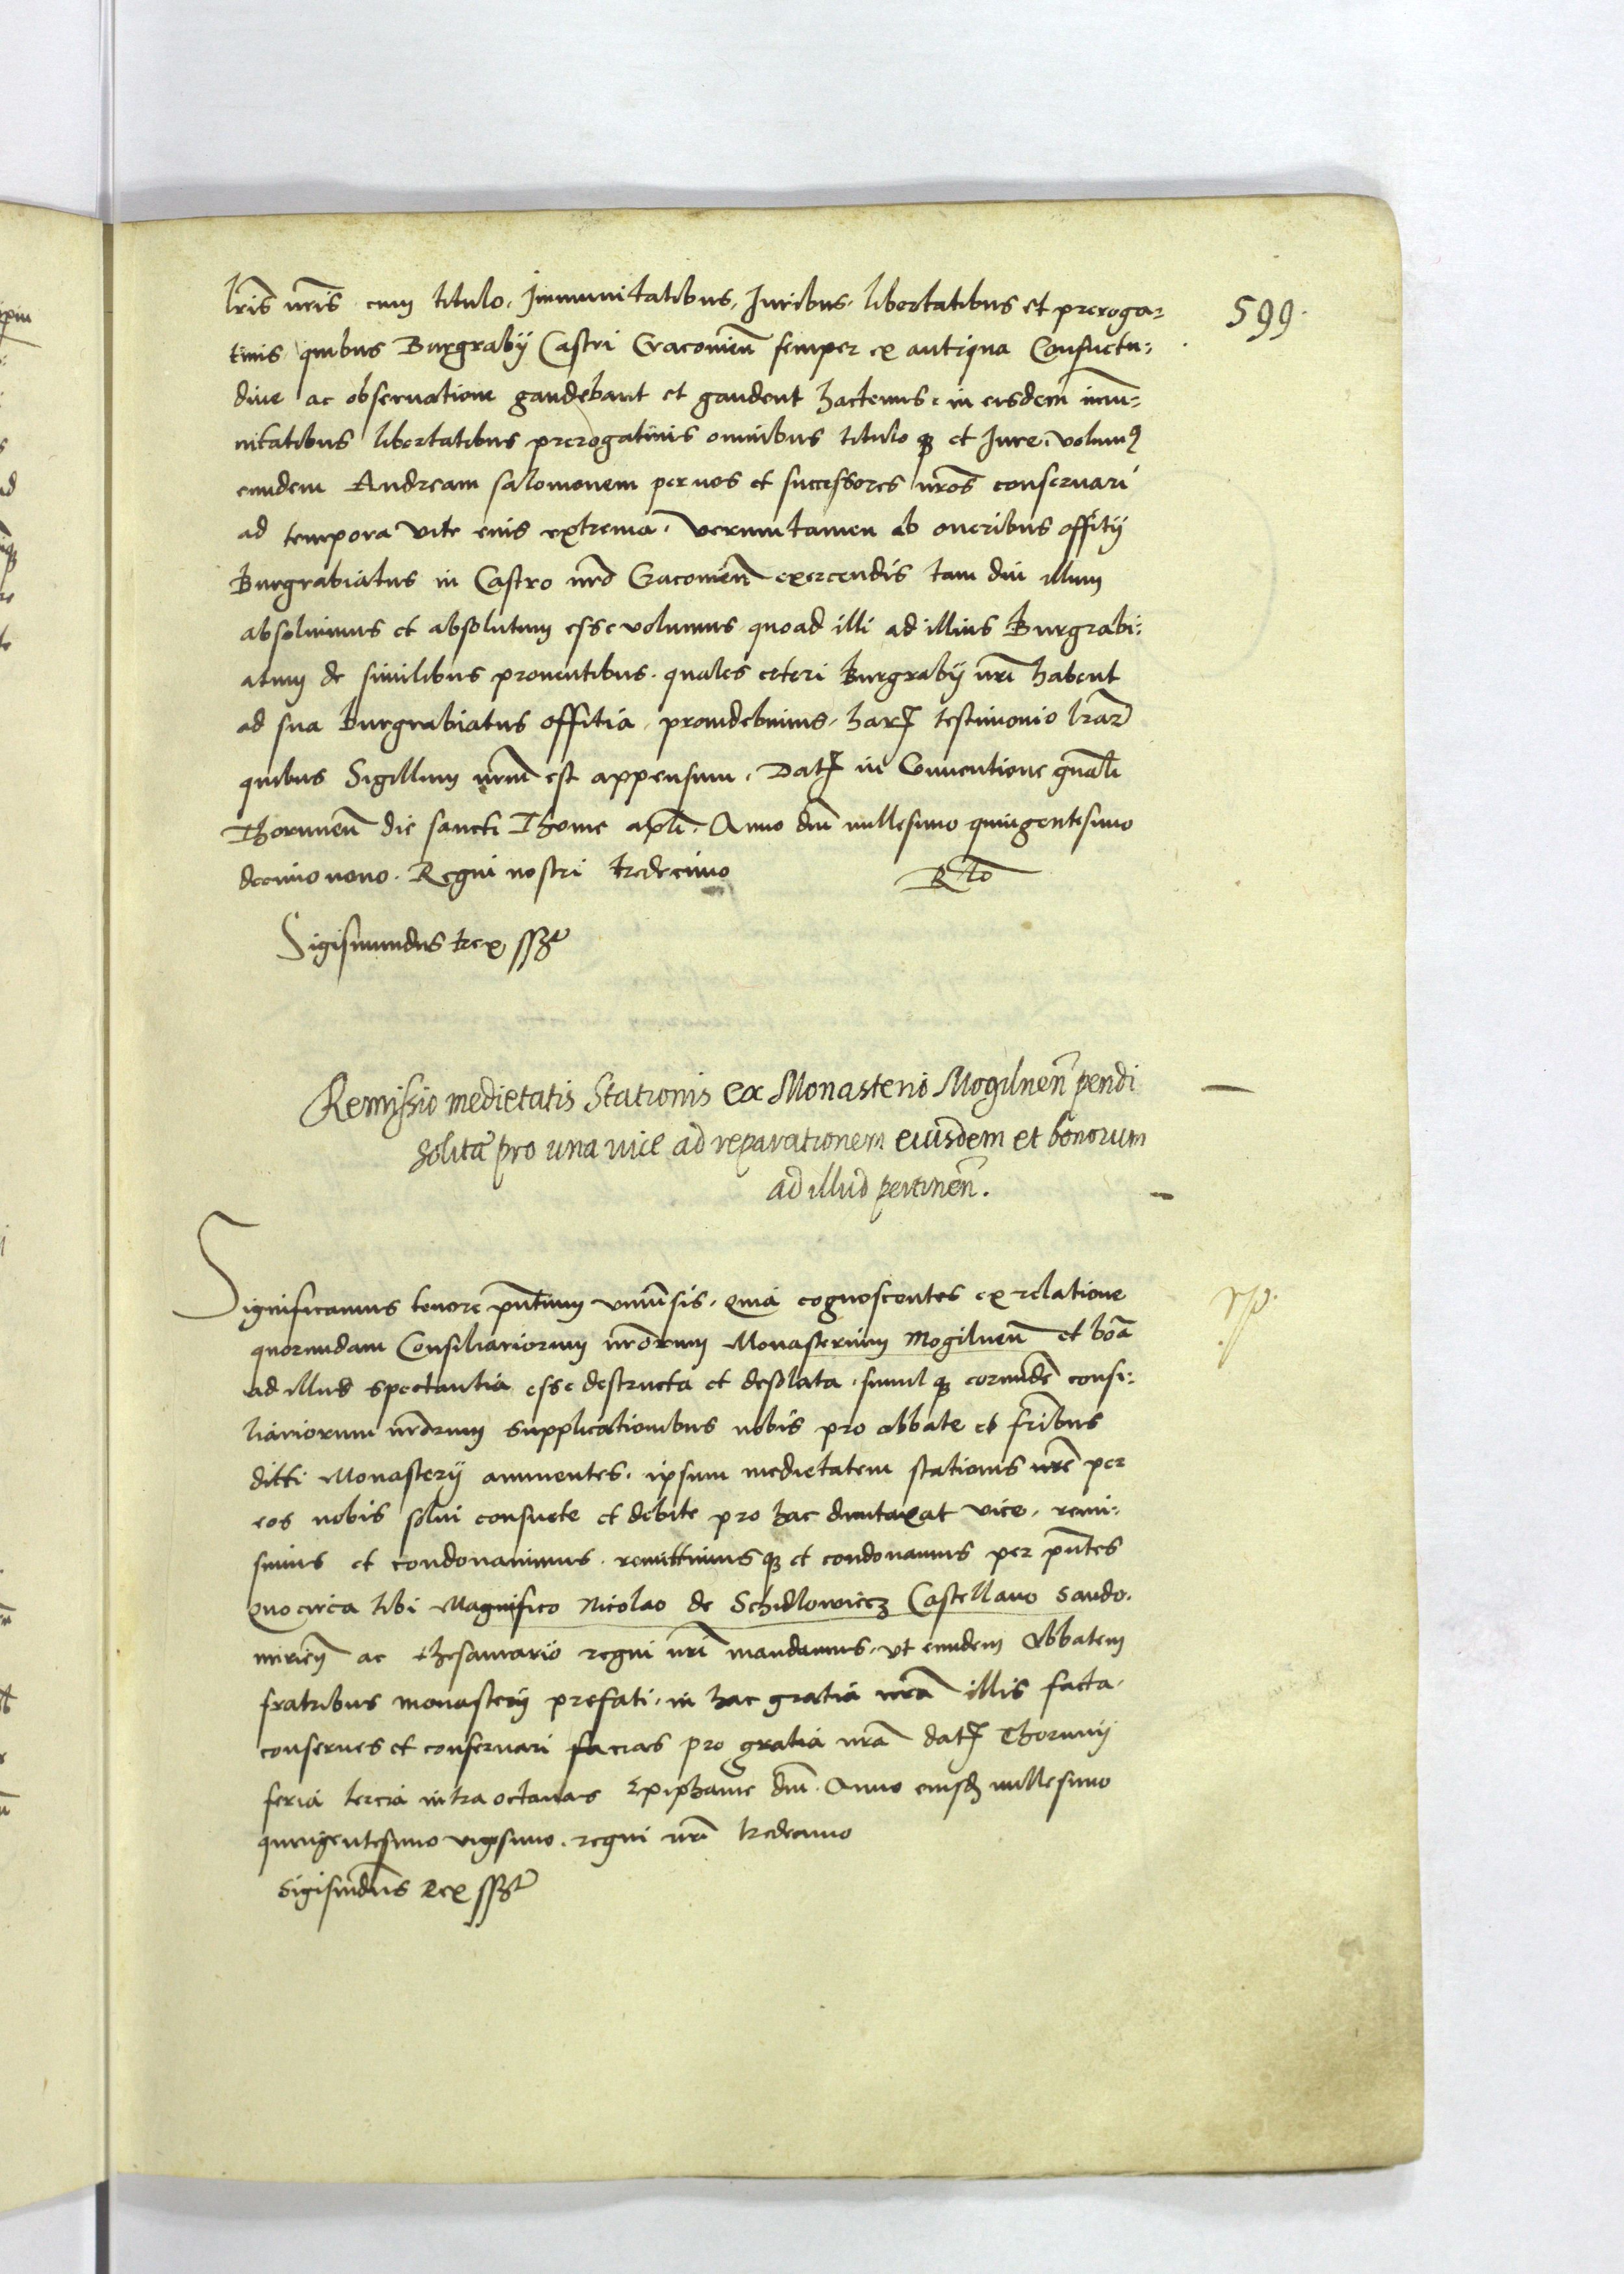 599.
lr̃is nr̃is cum titulo, Immunitatibus, Juribus, libertatibus et preroga=
tiuis quibus Burgrabij Castri Cracouien̄ semper ex antiqua Consuetu=
dine ac obseruatione gaudebant et gaudent hactenus, in eisdem im̄u=
nitatibus libertatibus prerogatiuis omnibus titulo qꝫ et Jure, volumꝰ
eundem Andream Salomonem per nos et successores nr̃os conseruari
ad tempora vite eius extrema, verumtamen ab oneribus offitij
Burgrabiatus in Castro nr̃o Cracouien̄ exercendis tam diu illum
absoluimus et absolutum esse volumus quoad illi ad illius Burgrabi=
atum de similibus prouentibus, quales ceteri Burgrabij nr̃i habent
ad sua Burgrabiatus offitia, prouidebimus, harꝫ testimonio lr̃arꝫ
quibus Sigillum nr̃um est appensum, Datꝫ in Conuentione gn̄ali
Thorunen̄ die sancti Thome apl̄i, Anno dn̄i millesimo quingentesimo
decimo nono. Regni nostri tredecimo Rt̄o
Sigismundus Rex sszt
Remissio medietatis Stationis ex Monasterio Mogilnen̄ pendi
solitæ pro una vice ad reparationem eiusdem et bonorum
ad illud pertinen̄.
Significamus tenore pn̄tium vniuersis, quia cognoscentes ex relatione
quorundam Consiliariorum nr̃orum Monasterium Mogilnen̄ et bōa
ad illud spectantia esse destructa et desolata, simul qꝫ eorundē consi=
liariorum nr̃orum supplicationibus nobis pro abbate et fr̃ibus
dicti Monasterij annuentes, ipsum medietatem stationis nr̃e per
eos nobis solui consuete et debite pro hac dumtaxat vice, remi=
simus et condonauimus, remittimus qꝫ et condonamus per pn̄tes
Quocirca tibi Magnifico Nicolao de Schidlowiecz Castellano Sando.
mirien̄ ac thesaurario regni nr̃i mandamus, vt eundem Abbatem
fratribus monasterij prefati, in hac gratia nr̃a illis facta,
conserues et conseruari facias pro gratia nr̃a datꝫ Thorunij
feria tercia intra octauas Epiphanie dn̄i. Anno eiusdꝫ millesimo
quingentesimo vigesimo, regni nr̃i tredecimo
Sigismūdus Rex sszt